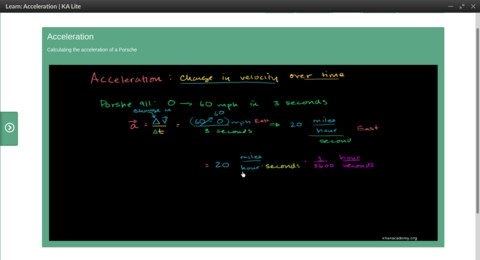 Learn: Acceleration | KA Lite
Acceleration
Calculating the acceleration of a Porsche
Acceleration : change in velocity over time
Porshe 911: 0 → 60 mph in 3 seconds
change in
60
a = Δv / Δt = (60 - 0) mph East / 3 seconds = 20 miles / hour / second East
= 20 miles / hour · seconds · 1 / 3600 hour / seconds
khanacademy.org